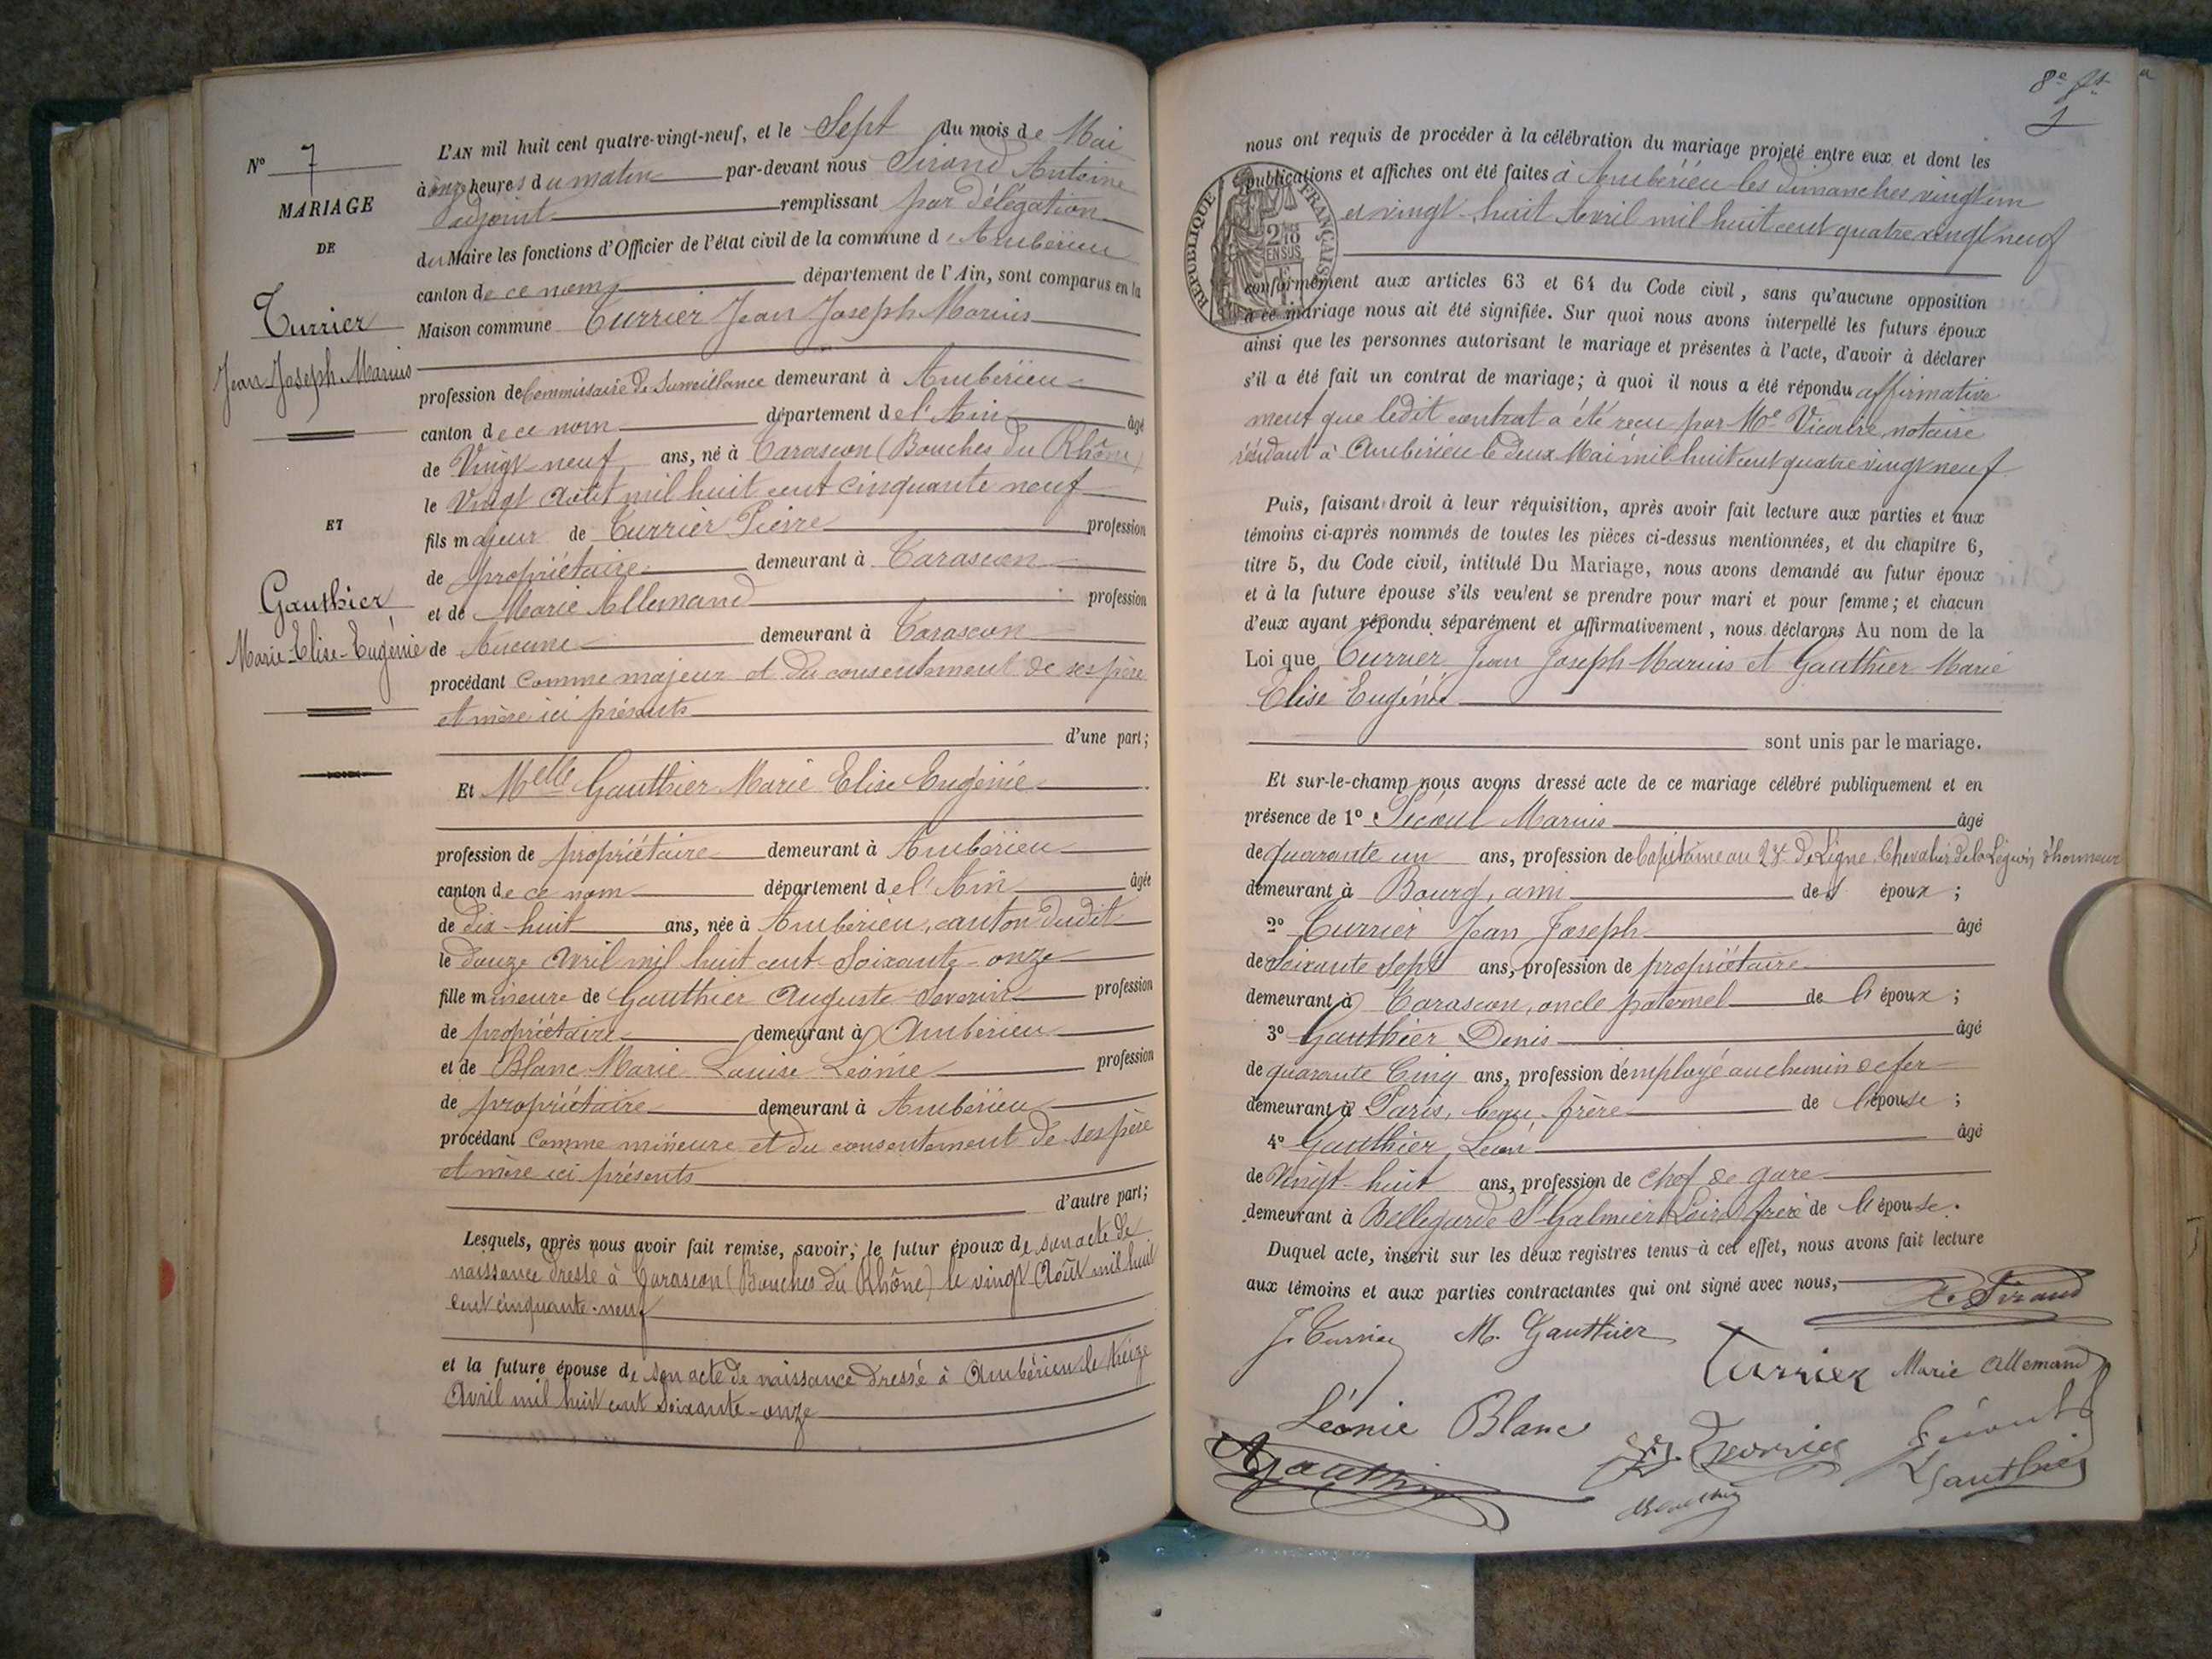 N° 7
MARIAGE
DE
Turrier
Jean Joseph Marius
ET
Gauthier
Marie-Elise-Eugénie
L'AN mil huit cent quatre-vingt-neuf, et le Sept du mois de Mai
à onze heures du matin par-devant nous Sirand Antoine
adjoint remplissant par délégation
du Maire les fonctions d'Officier de l'état civil de la commune d'Ambérieu
canton de ce nom département de l'Ain, sont comparus en la
Maison commune Turrier Jean Joseph Marius
profession de Commissaire de Surveillance demeurant à Ambérieu
canton de ce nom département de l'Ain âgé
de Vingt-neuf ans, né à Tarascon (Bouches du Rhône)
le Vingt Août mil huit cent cinquante neuf
fils majeur de Turrier Pierre profession
de propriétaire demeurant à Tarascon
et de Marie Allemand profession
de Aucune demeurant à Tarascon
procédant comme majeur et du consentement de ses père
et mère ici présents
d'une part;
Et Melle Gauthier Marie Elise Eugénie
profession de propriétaire demeurant à Ambérieu
canton de ce nom département de l'Ain âgée
de dix-huit ans, née à Ambérieu, canton dudit
le douze Avril mil huit cent Soixante-onze
fille mineure de Gauthier Auguste Séverin profession
de propriétaire demeurant à Ambérieu
et de Blanc Marie Louise Léonie profession
de propriétaire demeurant à Ambérieu
procédant comme mineure et du consentement de ses père
et mère ici présents
d'autre part;
Lesquels, après nous avoir fait remise, savoir; le futur époux de son acte de
naissance dressé à Tarascon (Bouches du Rhône) le vingt Août mil huit
cent cinquante-neuf
et la future épouse de son acte de naissance dressé à Ambérieu le treize
Avril mil huit cent soixante-onze
8e
nous ont requis de procéder à la célébration du mariage projeté entre eux et dont les
publications et affiches ont été faites à Ambérieu les dimanches vingt un
et vingt-huit Avril mil huit cent quatre vingt neuf
RÉPUBLIQUE FRANÇAISE
2/10 EN SUS
conformément aux articles 63 et 64 du Code civil, sans qu'aucune opposition
à ce mariage nous ait été signifiée. Sur quoi nous avons interpellé les futurs époux
ainsi que les personnes autorisant le mariage et présentes à l'acte, d'avoir à déclarer
s'il a été fait un contrat de mariage; à quoi il nous a été répondu affirmative
ment que ledit contrat a été reçu par Me notaire
résidant à Ambérieu le deux Mai mil huit cent quatre vingt neuf
Puis, faisant droit à leur réquisition, après avoir fait lecture aux parties et aux
témoins ci-après nommés de toutes les pièces ci-dessus mentionnées, et du chapitre 6,
titre 5, du Code civil, intitulé Du Mariage, nous avons demandé au futur époux
et à la future épouse s'ils veulent se prendre pour mari et pour femme; et chacun
d'eux ayant répondu séparément et affirmativement, nous déclarons Au nom de la
Loi que Turrier Jean Joseph Marius et Gauthier Marie
Elise Eugénie
sont unis par le mariage.
Et sur-le-champ nous avons dressé acte de ce mariage célébré publiquement et en
présence de 1° Marius âgé
de quarante un ans, profession de Capitaine au de Ligne, Chevalier de la Légion d'honneur
demeurant à Bourg, ami de l'époux;
2° Turrier Jean Joseph âgé
de soixante sept ans, profession de propriétaire
demeurant à Tarascon, oncle paternel de l'époux;
3° Gauthier Denis âgé
de quarante cinq ans, profession d'employé au chemin de fer
demeurant à Paris, beau-frère de l'épouse;
4° Gauthier Léon âgé
de Vingt-huit ans, profession de chef de gare
demeurant à Bellegarde St Galmier Loire frère de l'épouse.
Duquel acte, inscrit sur les deux registres tenus à cet effet, nous avons fait lecture
aux témoins et aux parties contractantes qui ont signé avec nous,
A. Sirand
J. Turrier M. Gauthier Turrier Marie Allemand
Léonie Blanc
A Gauthier
L Gauthier